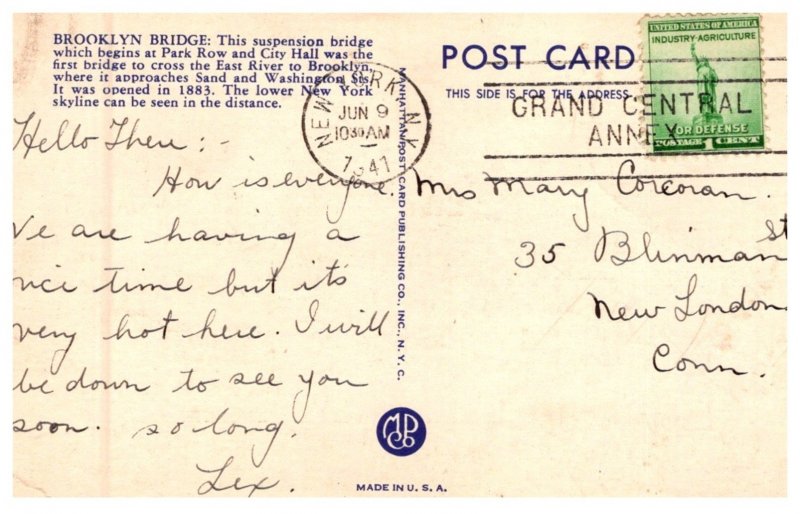 BROOKLYN BRIDGE: This suspension bridge
which begins at Park Row and City Hall was the
first bridge to cross the East River to Brooklyn,
where it approaches Sand and Washington Sts.
It was opened in 1883. The lower New York
skyline can be seen in the distance.
Hello There:
How is everyone.
We are having a
nice time but it's
very hot here. I will
be down to see you
soon. so long.
Lex.
MANHATTAN POST CARD PUBLISHING CO., INC., N.Y.C.
MPCo
MADE IN U. S. A.
POST CARD
THIS SIDE IS FOR THE ADDRESS
NEW YORK, N.Y.
JUN 9
10 30 AM
1941
GRAND CENTRAL
ANNEX
UNITED STATES OF AMERICA
INDUSTRY·AGRICULTURE
FOR DEFENSE
POSTAGE 1 CENT
Mrs Mary Corcoran.
35 Blinman St
New London
Conn.